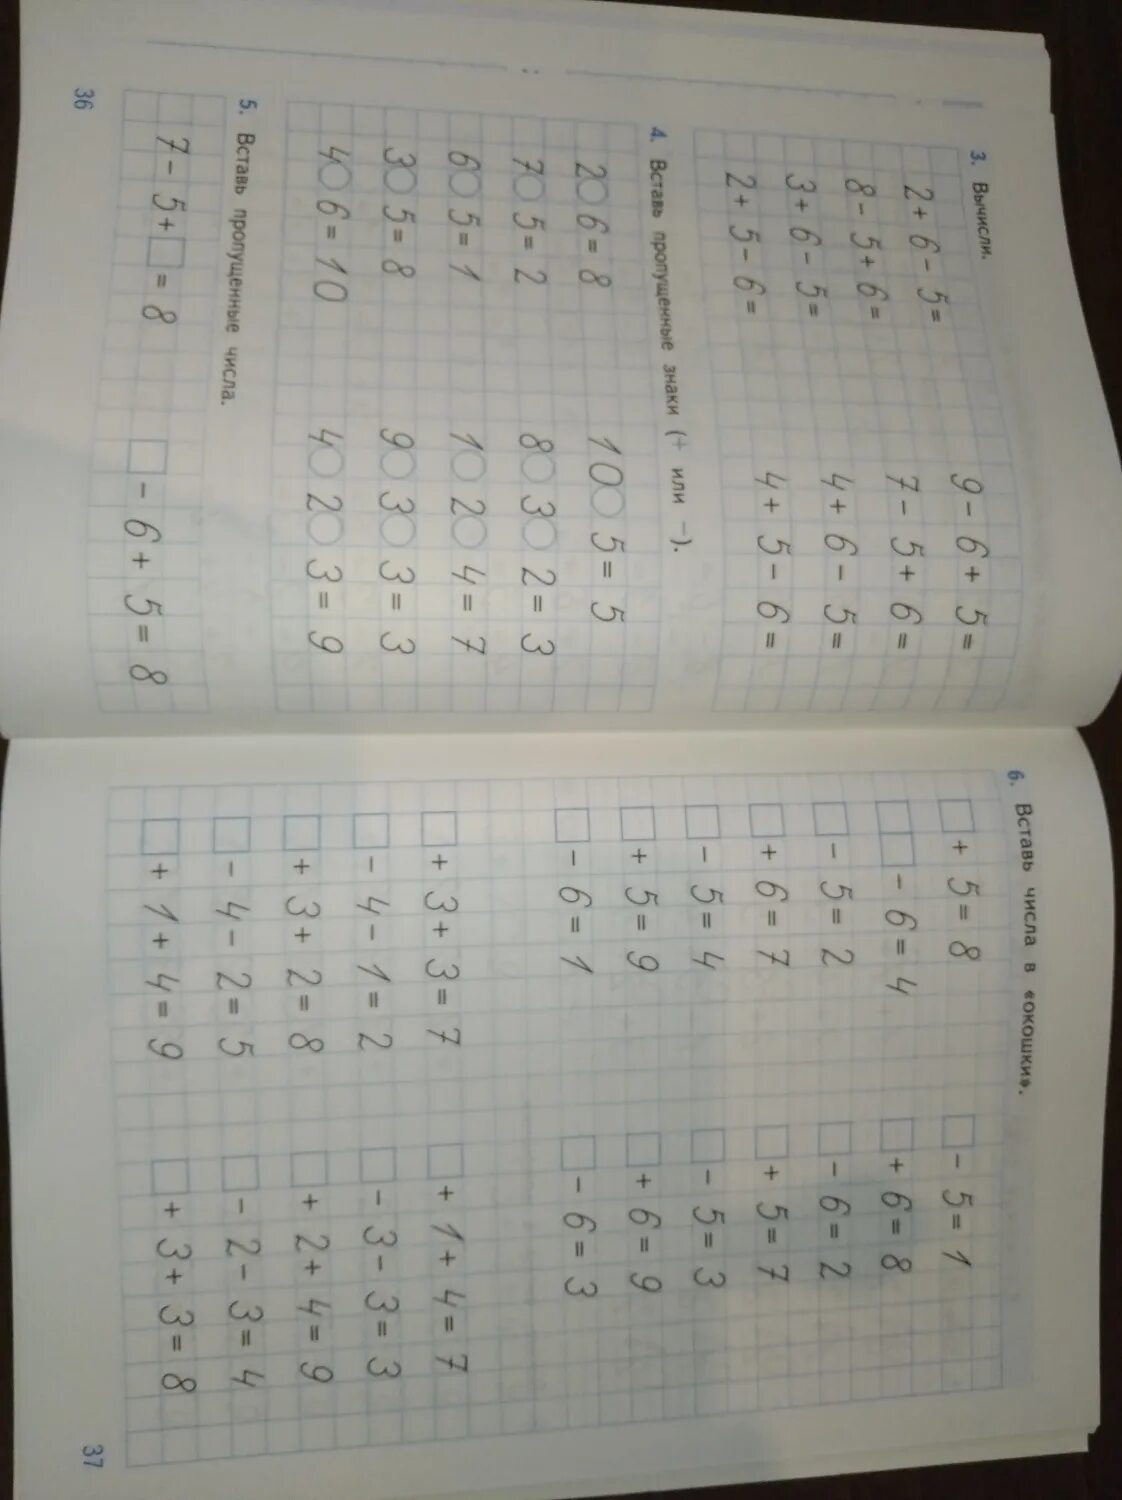 3. Вычисли.
2 + 6 - 5 = 9 - 6 + 5 =
8 - 5 + 6 = 7 - 5 + 6 =
3 + 6 - 5 = 4 + 6 - 5 =
2 + 5 - 6 = 4 + 5 - 6 =
4. Вставь пропущенные знаки (+ или -).
2○6 = 8 10○5 = 5
7○5 = 2 8○3○2 = 3
6○5 = 1 1○2○4 = 7
3○5 = 8 9○3○3 = 3
4○6 = 10 4○2○3 = 9
5. Вставь пропущенные числа.
7 - 5 + □ = 8 □ - 6 + 5 = 8
36
6. Вставь числа в «окошки».
□ + 5 = 8 □ - 5 = 1
□□ - 6 = 4 □ + 6 = 8
□ - 5 = 2 □ - 6 = 2
□ + 6 = 7 □ + 5 = 7
□ - 5 = 4 □ - 5 = 3
□ + 5 = 9 □ + 6 = 9
□ - 6 = 1 □ - 6 = 3
□ + 3 + 3 = 7 □ + 1 + 4 = 7
□ - 4 - 1 = 2 □ - 3 - 3 = 3
□ + 3 + 2 = 8 □ + 2 + 4 = 9
□ - 4 - 2 = 5 □ - 2 - 3 = 4
□ + 1 + 4 = 9 □ + 3 + 3 = 8
37